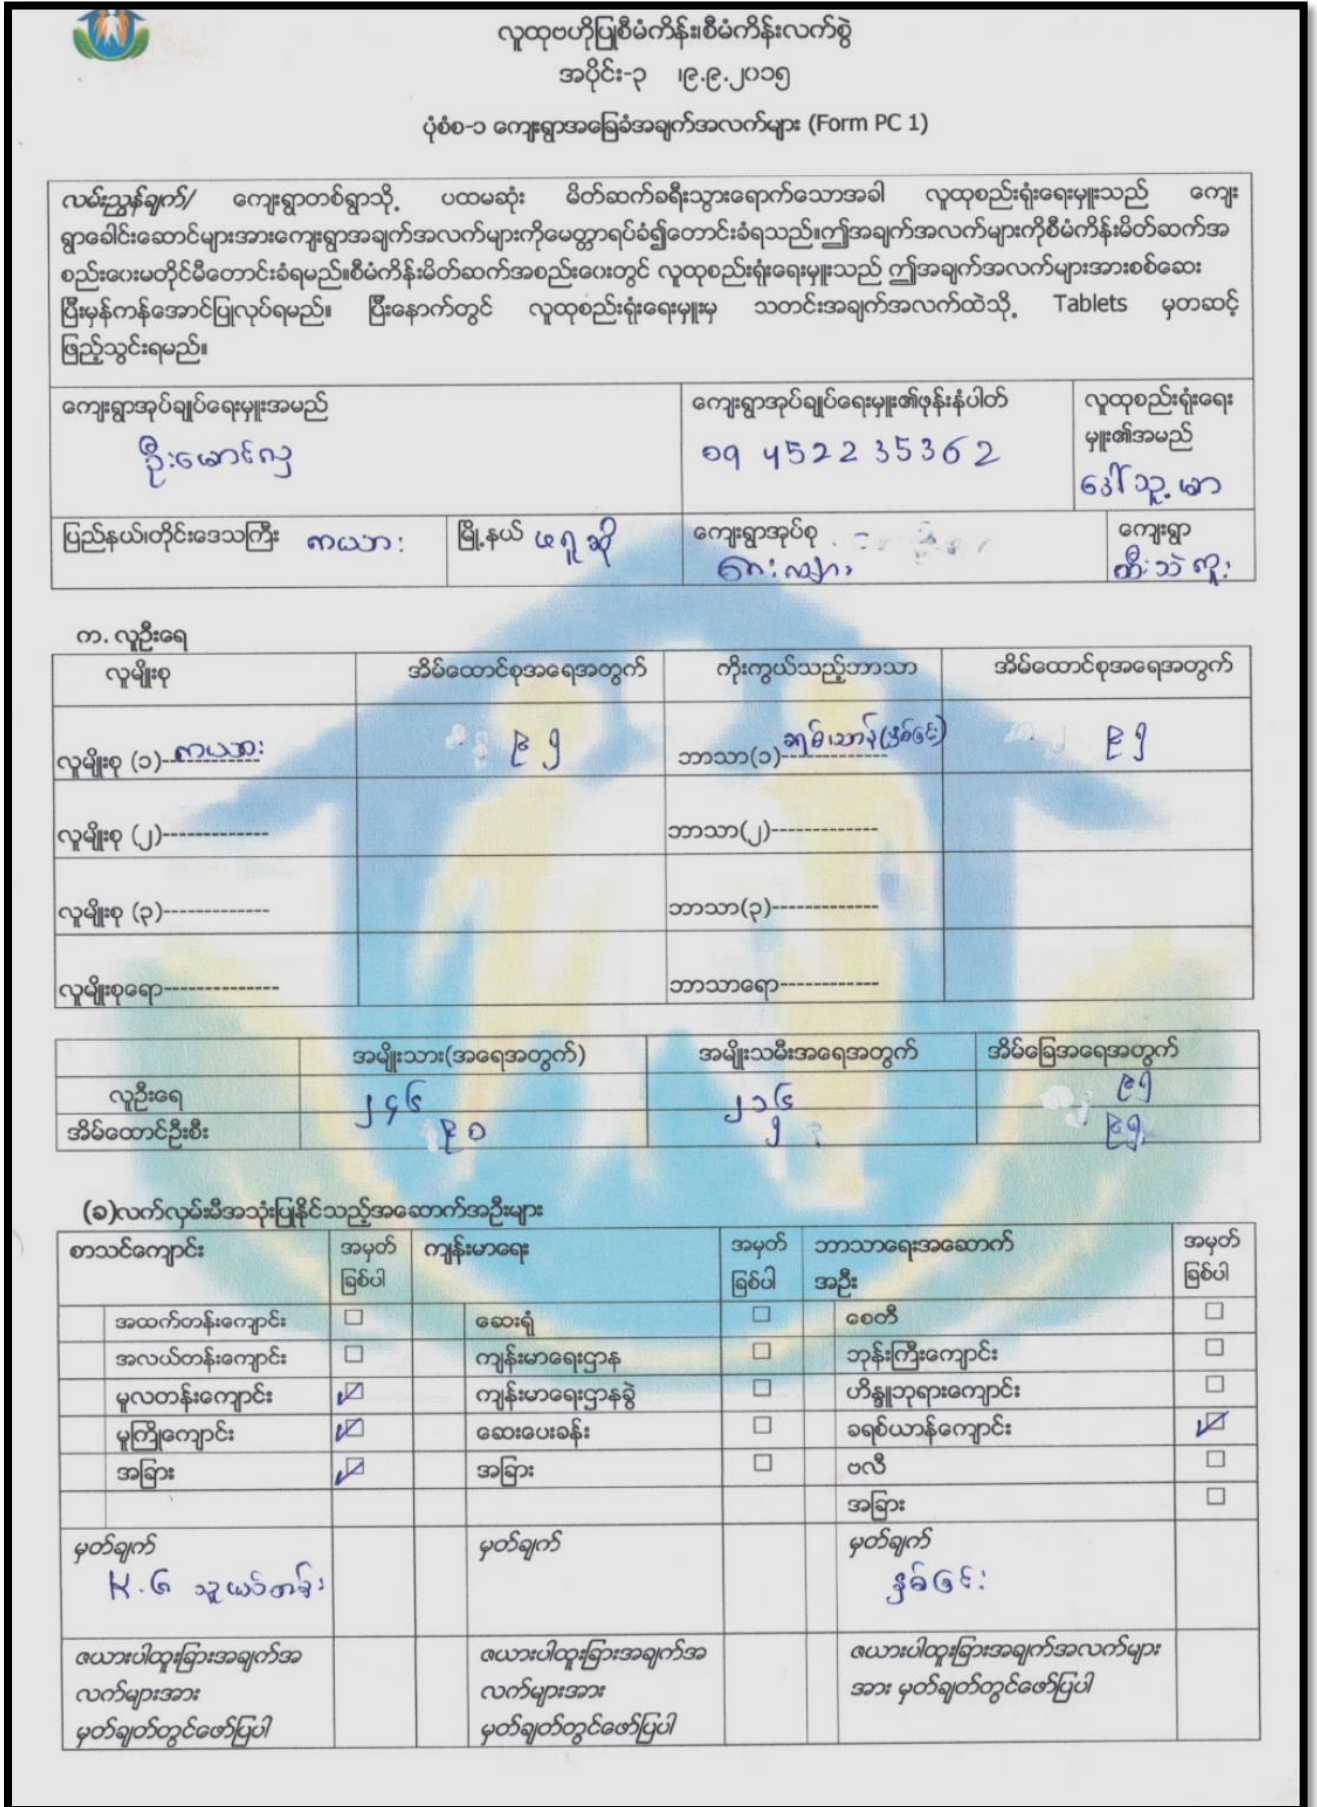 လူထုဗဟိုပြုစီမံကိန်း၊စီမံကိန်းလက်စွဲ
အပိုင်း-၃ ၊၉.၉.၂၀၁၅
ပုံစံစ-၁ ကျေးရွာအခြေခံအချက်အလက်များ (Form PC 1)
လမ်းညွှန်ချက်/ ကျေးရွာတစ်ရွာသို့ ပထမဆုံး မိတ်ဆက်ခရီးသွားရောက်သောအခါ လူထုစည်းရုံးရေးမှူးသည် ကျေး
ရွာခေါင်းဆောင်များအားကျေးရွာအချက်အလက်များကိုမေတ္တာရပ်ခံ၍တောင်းခံရသည်။ဤအချက်အလက်များကိုစီမံကိန်းမိတ်ဆက်အ
စည်းဝေးမတိုင်မီတောင်းခံရမည်။စီမံကိန်းမိတ်ဆက်အစည်းဝေးတွင် လူထုစည်းရုံးရေးမှူးသည် ဤအချက်အလက်များအားစစ်ဆေး
ပြီးမှန်ကန်အောင်ပြုလုပ်ရမည်။ ပြီးနောက်တွင် လူထုစည်းရုံးရေးမှူးမှ သတင်းအချက်အလက်ထဲသို့ Tablets မှတဆင့်
ဖြည့်သွင်းရမည်။
ကျေးရွာအုပ်ချုပ်ရေးမှူးအမည် ကျေးရွာအုပ်ချုပ်ရေးမှူး၏ဖုန်းနံပါတ် လူထုစည်းရုံးရေး
မှူး၏အမည်
ဦးမောင်လှ 09 452235362 ဒေါ်သူဇာ
ပြည်နယ်၊တိုင်းဒေသကြီး ကယား မြို့နယ် ဖရူဆို ကျေးရွာအုပ်စု ကျေးရွာ
ထီးသဲကူး
က. လူဦးရေ
လူမျိုးစု အိမ်ထောင်စုအရေအတွက် ကိုးကွယ်သည့်ဘာသာ အိမ်ထောင်စုအရေအတွက်
လူမျိုးစု (၁) ကယား ၉၅ ဘာသာ(၁) ခရစ်ယာန်(နှစ်ခြင်း) ၉၅
လူမျိုးစု (၂)------------- ဘာသာ(၂)-------------
လူမျိုးစု (၃)------------- ဘာသာ(၃)-------------
လူမျိုးစုရော-------------- ဘာသာရော------------
အမျိုးသား(အရေအတွက်) အမျိုးသမီးအရေအတွက် အိမ်ခြေအရေအတွက်
လူဦးရေ ၂၄၆ ၂၁၆ ၉၅
အိမ်ထောင်ဦးစီး ၉၀ ၅ ၉၅
(ခ)လက်လှမ်းမီအသုံးပြုနိုင်သည့်အဆောက်အဦးများ
စာသင်ကျောင်း အမှတ် ကျန်းမာရေး အမှတ် ဘာသာရေးအဆောက် အမှတ်
ခြစ်ပါ ခြစ်ပါ အဦး ခြစ်ပါ
အထက်တန်းကျောင်း ဆေးရုံ စေတီ
အလယ်တန်းကျောင်း ကျန်းမာရေးဌာန ဘုန်းကြီးကျောင်း
မူလတန်းကျောင်း ကျန်းမာရေးဌာနခွဲ ဟိန္ဒူဘုရားကျောင်း
မူကြိုကျောင်း ဆေးပေးခန်း ခရစ်ယာန်ကျောင်း
အခြား အခြား ဗလီ
အခြား
မှတ်ချက် မှတ်ချက် မှတ်ချက်
K.G သူငယ်တန်း နှစ်ခြင်း
ဇယားပါထူးခြားအချက်အ ဇယားပါထူးခြားအချက်အ ဇယားပါထူးခြားအချက်အလက်များ
လက်များအား လက်များအား အား မှတ်ချတ်တွင်ဖော်ပြပါ
မှတ်ချတ်တွင်ဖော်ပြပါ မှတ်ချတ်တွင်ဖော်ပြပါ